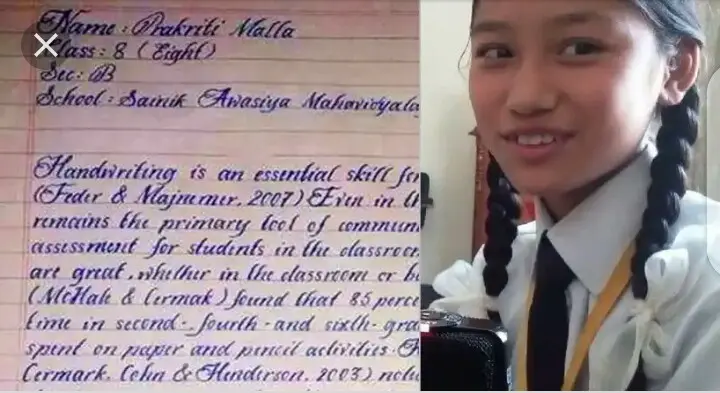 Name : Prakriti Malla
Class : 8 ( Eight )
Sec : B
School : Sainik Awasiya Mahavidyala
Handwriting is an essential skill for
(Feder & Majnemer, 2007) Even in th
remains the primary tool of commun
assessment for students in the classroom
are great, whether in the classroom or b
(McHale & Cermak ) found that 85 perce
time in second-, fourth-and sixth-gra
spent on paper and pencil activities.
Cermark, Cohn & Henderson, 2003) note